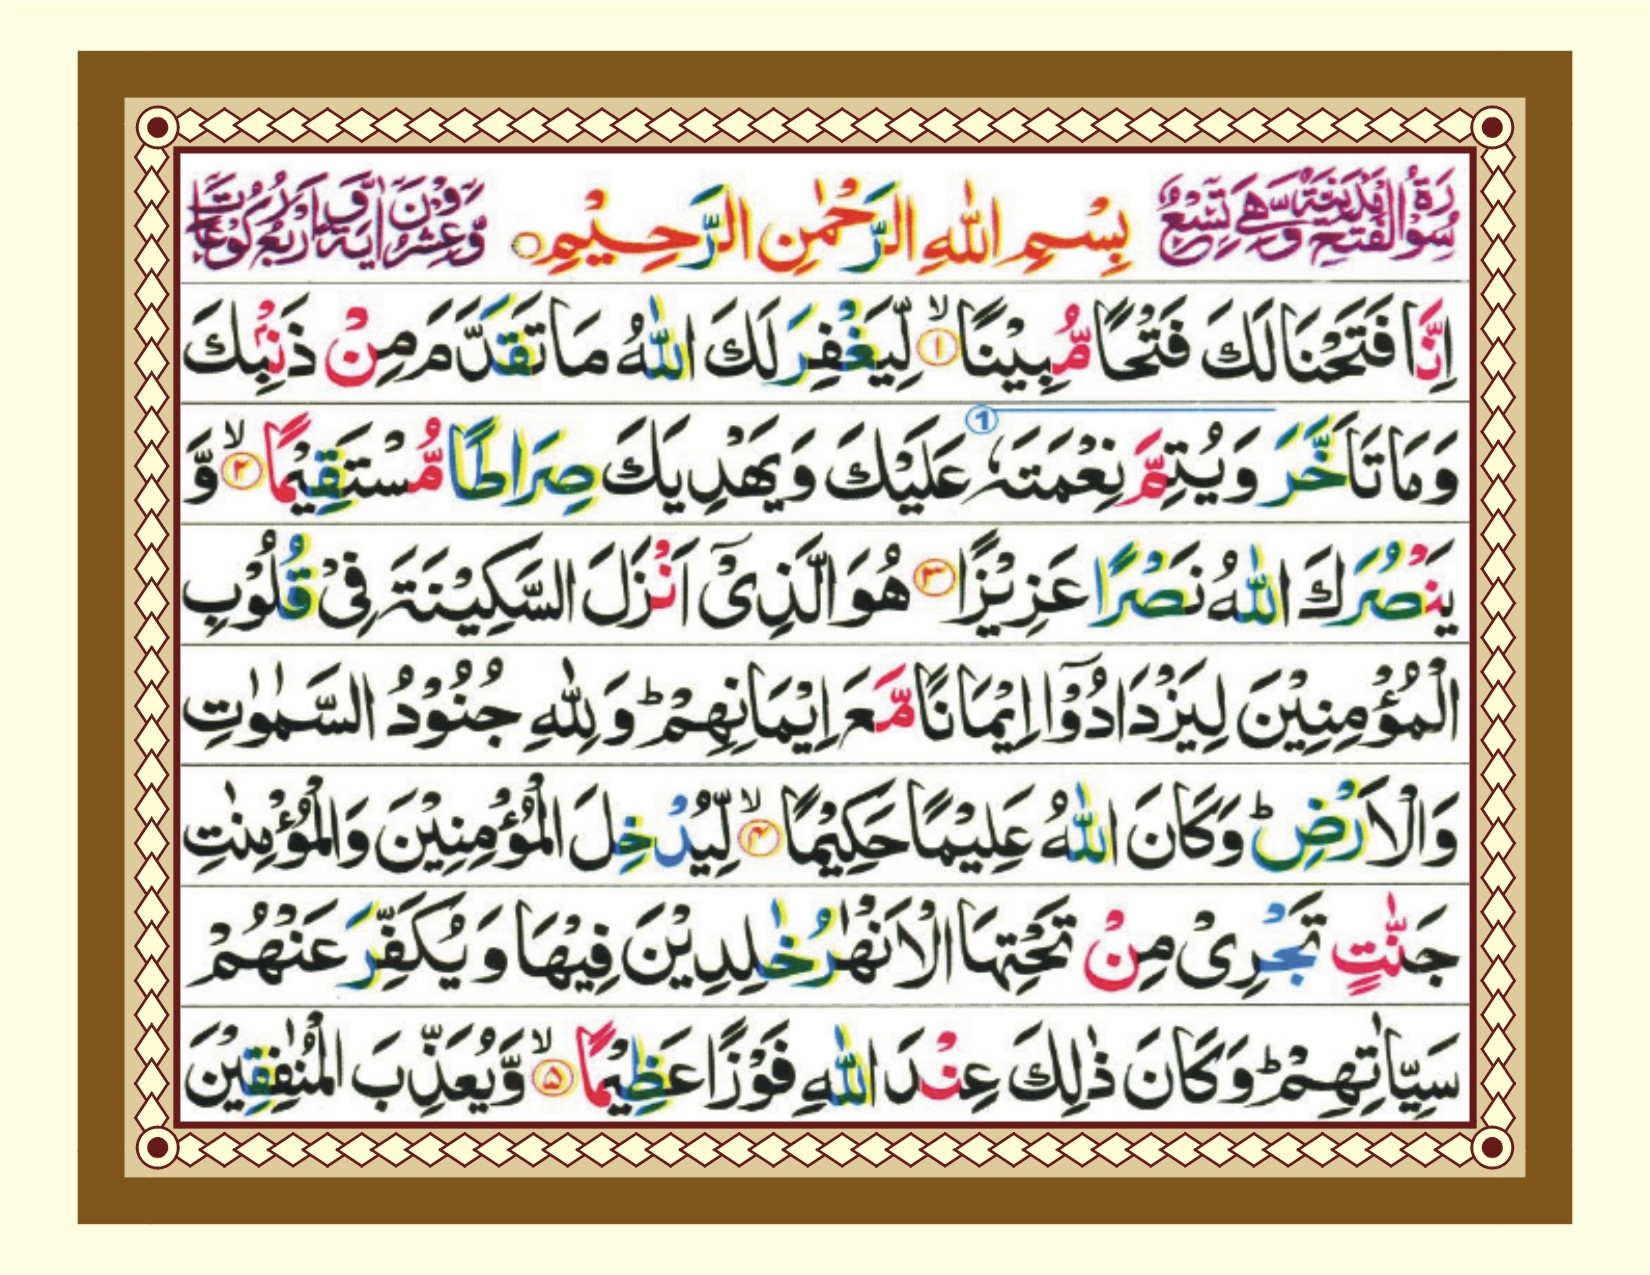 سُوْرَةُ الْفَتْحِ مَدَنِيَّةٌ وَّهِيَ تِسْعٌ
بِسْمِ اللّٰهِ الرَّحْمٰنِ الرَّحِيْمِ
وَّعِشْرُوْنَ اٰيَةً وَّاَرْبَعُ رُكُوْعَاتٍ
اِنَّا فَتَحْنَا لَكَ فَتْحًا مُّبِيْنًا ۙ۝۱ لِّيَغْفِرَ لَكَ اللّٰهُ مَا تَقَدَّمَ مِنْ ذَنْۢبِكَ
وَمَا تَاَخَّرَ وَيُتِمَّ نِعْمَتَهٗ عَلَيْكَ وَيَهْدِيَكَ صِرَاطًا مُّسْتَقِيْمًا ۙ۝۲ وَّ
1
يَنْصُرَكَ اللّٰهُ نَصْرًا عَزِيْزًا ۝۳ هُوَ الَّذِىْٓ اَنْزَلَ السَّكِيْنَةَ فِىْ قُلُوْبِ
الْمُؤْمِنِيْنَ لِيَزْدَادُوْٓا اِيْمَانًا مَّعَ اِيْمَانِهِمْ ؕ وَلِلّٰهِ جُنُوْدُ السَّمٰوٰتِ
وَالْاَرْضِ ؕ وَكَانَ اللّٰهُ عَلِيْمًا حَكِيْمًا ۙ۝۴ لِّيُدْخِلَ الْمُؤْمِنِيْنَ وَالْمُؤْمِنٰتِ
جَنّٰتٍ تَجْرِىْ مِنْ تَحْتِهَا الْاَنْهٰرُ خٰلِدِيْنَ فِيْهَا وَيُكَفِّرَ عَنْهُمْ
سَيِّاٰتِهِمْ ؕ وَكَانَ ذٰلِكَ عِنْدَ اللّٰهِ فَوْزًا عَظِيْمًا ۙ۝۵ وَّيُعَذِّبَ الْمُنٰفِقِيْنَ